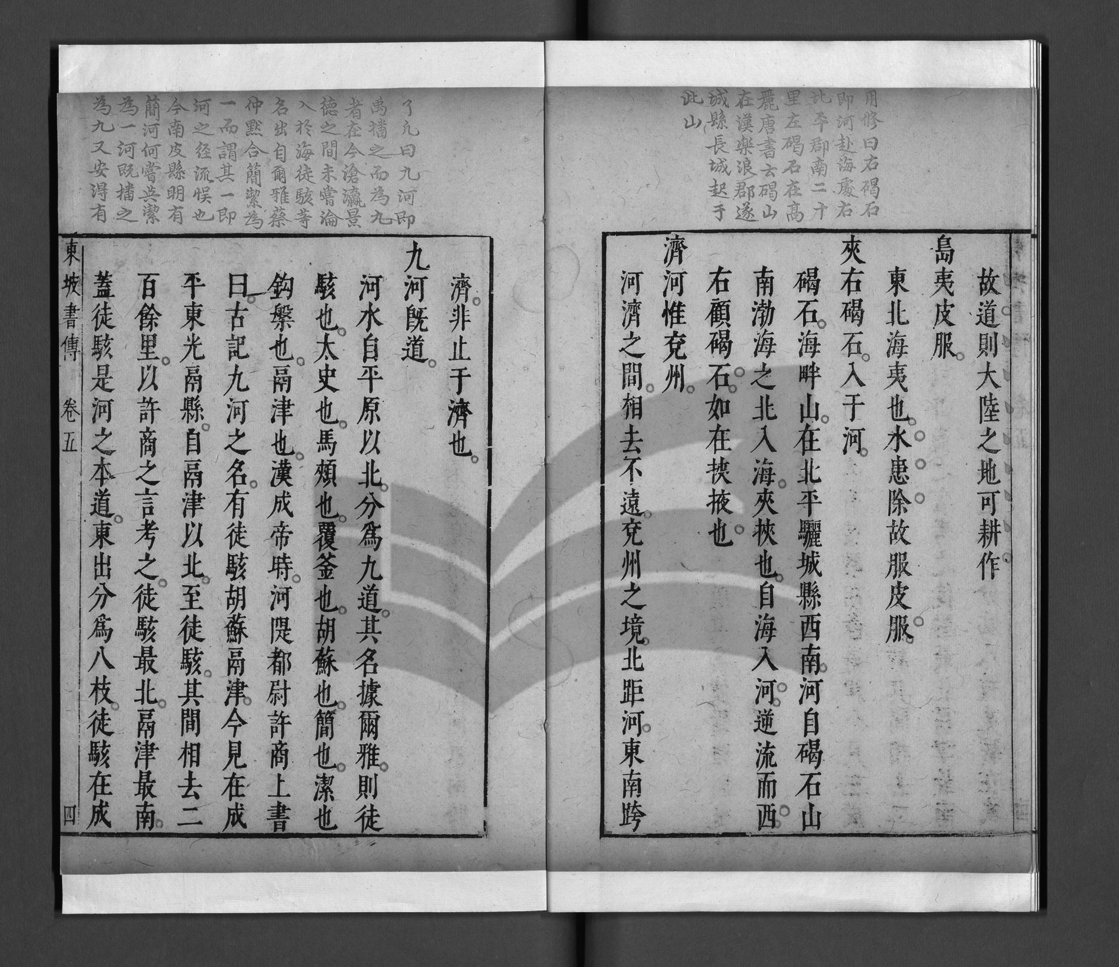 用修曰右碣石
即河赴海處右
北平郡南二十
里左碣石在高
麗唐書云碣山
在漢樂浪郡遂
城縣長城起于
此山
故道則大陸之地可耕作。
島夷皮服。
東北海夷也。水患除故服皮服。
夾右碣石。入于河。
碣石。海畔山。在北平驪城縣西南。河自碣石山
南渤海之北入海。夾挾也。自海入河。逆流而西。
右顧碣石。如在挾掖也。
濟河惟兗州。
河濟之間。相去不遠。兗州之境。北距河。東南跨
濟。非止于濟也。
九河既道。
河水自平原以北。分爲九道。其名據爾雅。則徒
駭也。太史也。馬頰也。覆釜也。胡蘇也。簡也。潔也
鈎槃也。鬲津也。漢成帝時。河隄都尉許商上書
曰。古記九河之名。有徒駭胡蘇鬲津。今見在成
平東光鬲縣。自鬲津以北。至徒駭。其間相去二
百餘里。以許商之言考之。徒駭最北。鬲津最南。
蓋徒駭是河之本道。東出分爲八枝。徒駭在成
了凡曰九河即
禹播之而為九
者在今滄瀛景
德之間未嘗淪
入於海徒駭等
名出自爾雅蔡
仲默合簡絜為
一而謂其一即
河之徑流悞也
今南皮縣明有
簡河何嘗與潔
為一河既播之
為九又安得有
東坡書傳 卷五 四